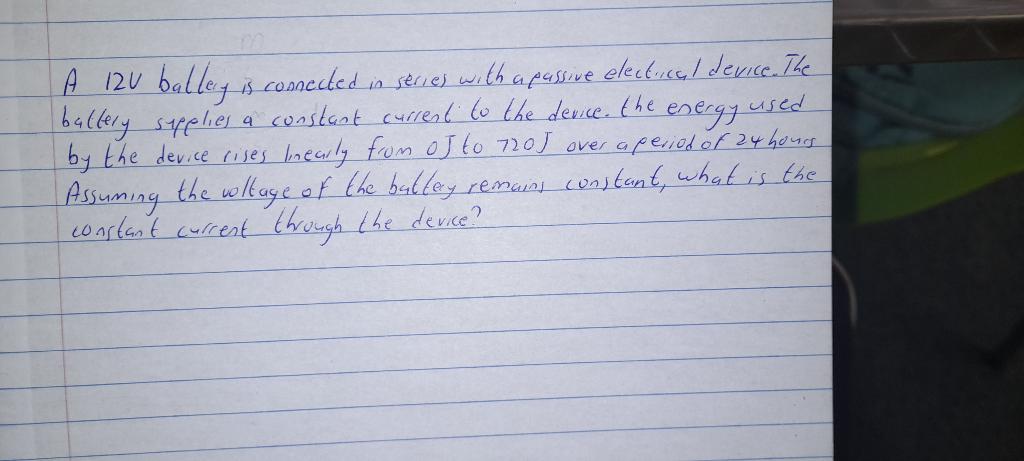 A 12V battery is connected in series with a passive electrical device. The
battery supplies a constant current to the device. the energy used
by the device rises linearly from 0J to 720J over a period of 24 hours
Assuming the voltage of the battery remains constant, what is the
constant current through the device?